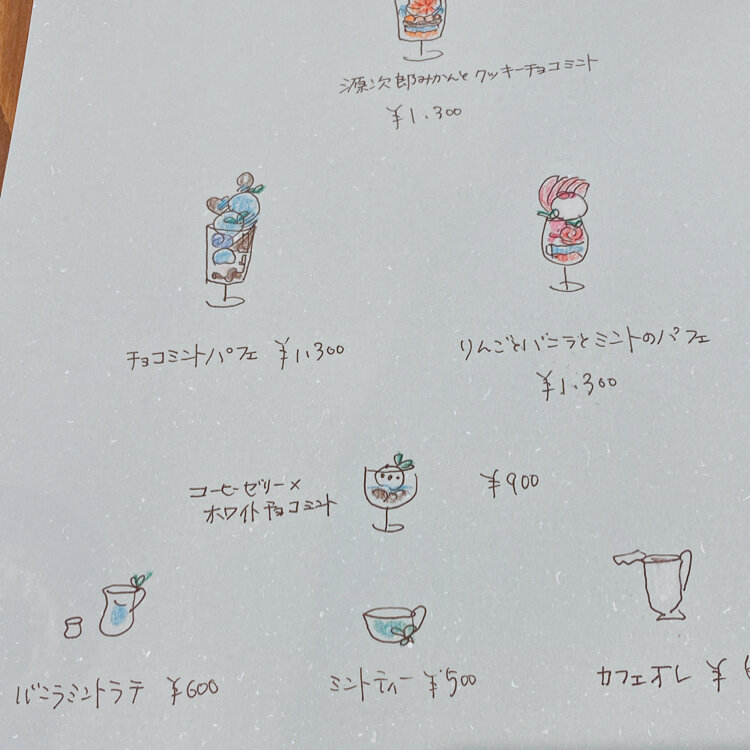 源次郎みかんと クッキーチョコミント
¥1.300
チョコミントパフェ ¥1.300
りんごとバニラとミントのパフェ
¥1.300
コーヒーゼリー×
ホワイトチョコミント
¥900
バニラミントラテ ¥600
ミントティー ¥500
カフェオレ ¥